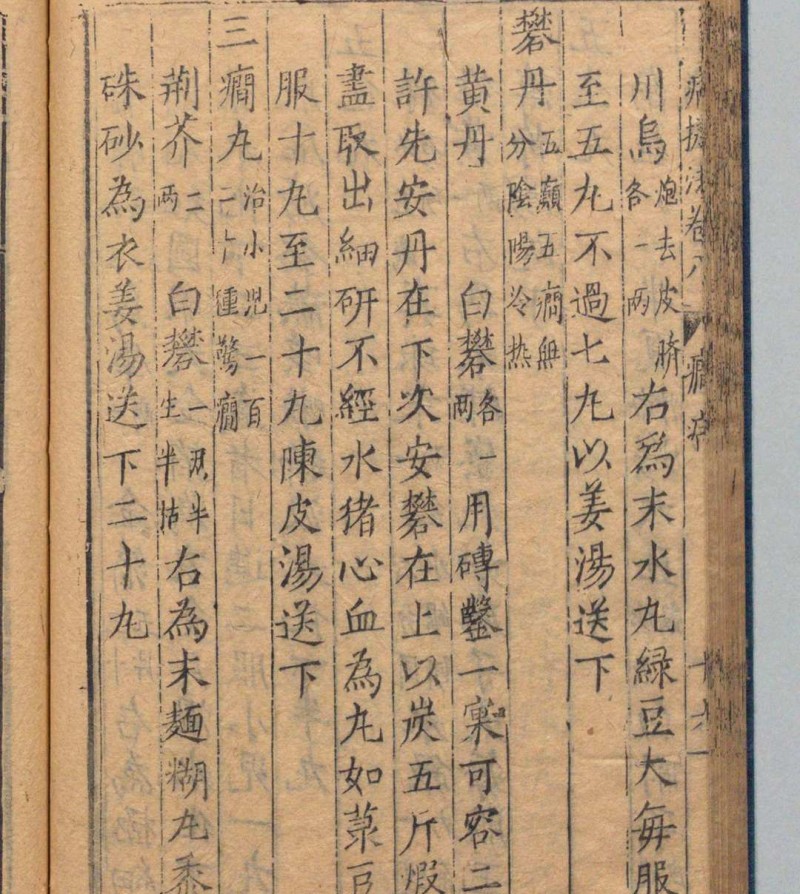 卷八
川烏炮去皮臍各一两右為末水丸綠豆大每服
至五丸不過七丸以姜湯送下
礬丹五癲五癇無分陰陽冷热
黄丹白礬各一两用磚鑿一窠可容二
許先安丹在下次安礬在上以炭五斤煅
盡取出細研不經水猪心血為丸如菉豆
服十丸至二十丸陳皮湯送下
三癇丸治小児一百二十種驚癇
荆芥二两白礬一两半生半枯右為末麺糊丸黍
硃砂為衣姜湯送下二十丸